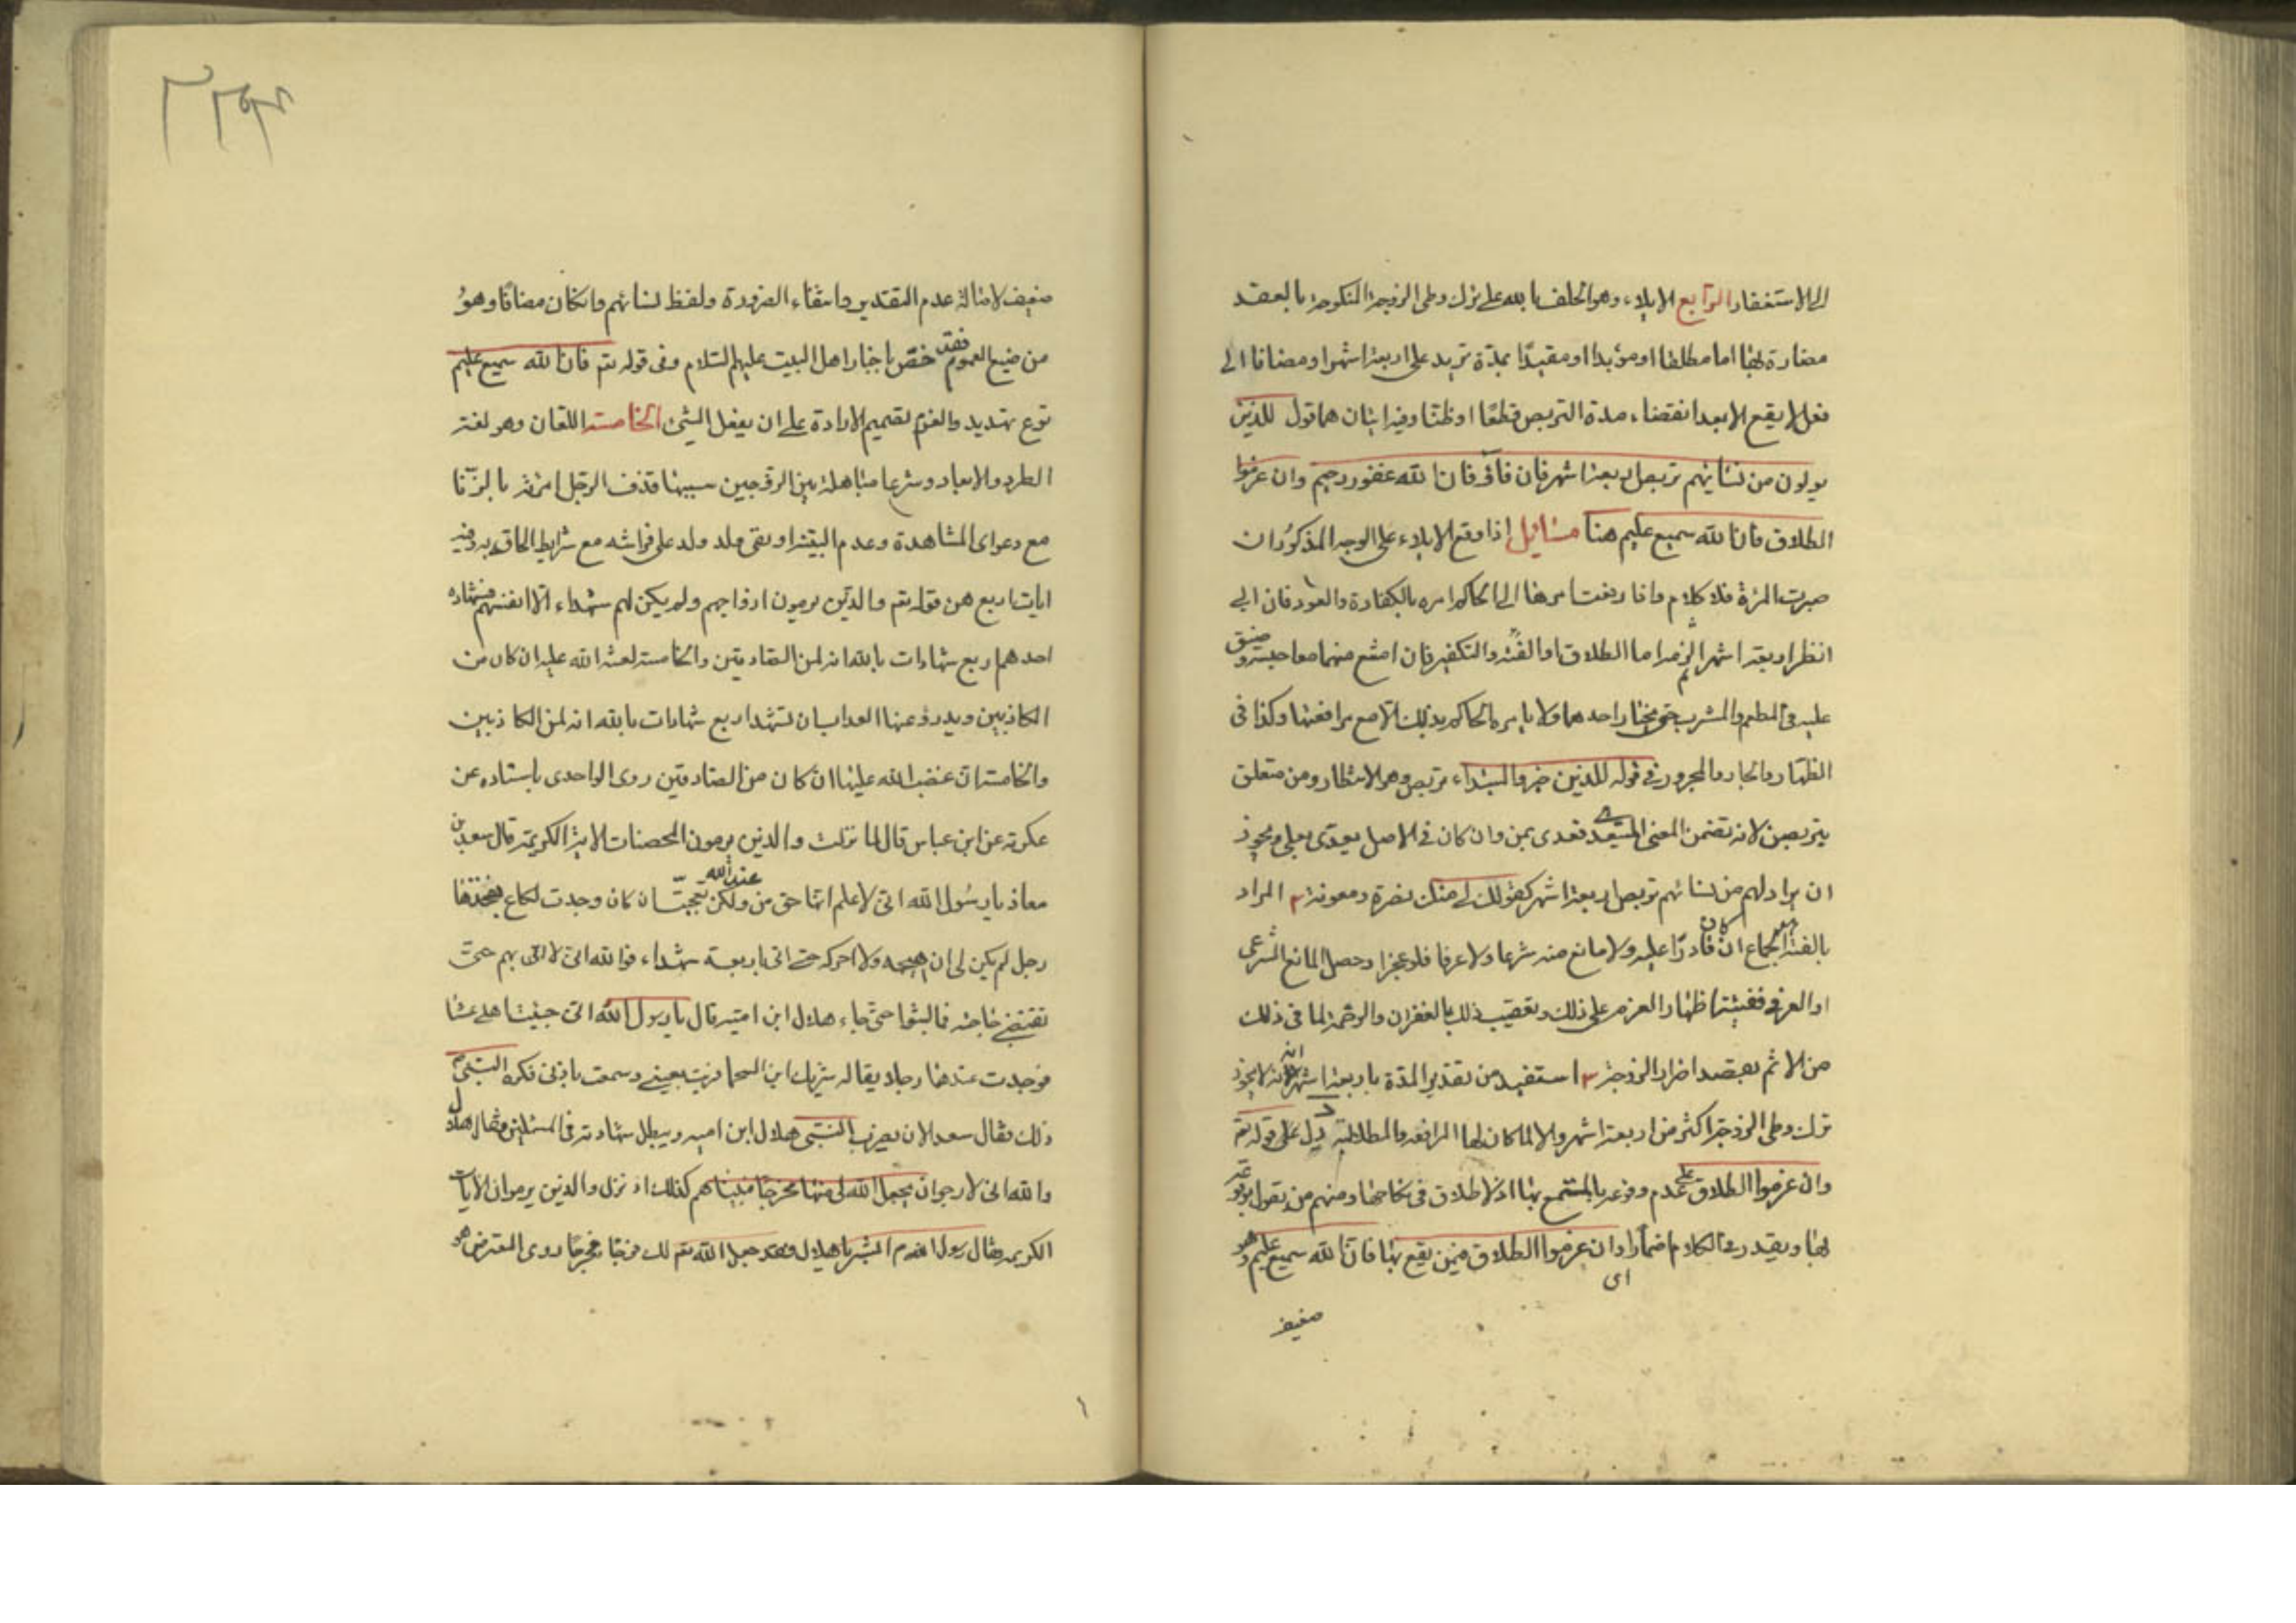 الى الاستغفار الرابع الايلاء وهو الحلف بالله على ترك وطى الزوجة المنكوحة بالعقد
مضارة لها اما مطلقا او مؤبدا او مقيدا بمدة تزيد على اربعة اشهر او مضافا الى
فعل لا يقع الا بعد انقضاء مدة التربص قطعا او ظنا وفيه ايتان هما قوله للذين
يولون من نسائهم تربص اربعة اشهر فان فاؤ فان الله غفور رحيم وان عزموا
الطلاق فان الله سميع عليم هنا مسائل اذا وقع الايلاء على الوجه المذكور ان
صبرت المرئة فلا كلام واذا رفعت امرها الى الحاكم امره بالكفارة والعود فان ابى
انظر اربعة اشهر ثم الزمه اما الطلاق او الفئة والتكفير فان امتنع منهما معا حبسه وضيق
عليه فى المطعم والمشرب حتى يختار احدهما ولا يامره الحاكم بذلك الا مع مرافعتها وكذا فى
الظهار والجار والمجرور فى قوله للذين خبر والمبتداء تربص وهو الانتظار ومن متعلق
بتربص لانه تضمن المعنى البعد فعدى بمن وان كان فى الاصل يعدى بعلى ويجوز
ان يراد لهم من نسائهم تربص اربعة اشهر كقولك لى منك نصرة ومعونة ٢ المراد
بالفئة الجماع ان كان قادرا عليه ولا مانع منه شرعا ولا عرفا فلو عجز او حصل المانع الشرعى
او العرفى ففيئته اظهار العزم على ذلك وتعقيب ذلك بالغفران والرحمة لما فى ذلك
من الاثم بقصد اضرار الزوجة ٣ استفيد من تقدير المدة باربعة اشهر انه لا يجوز
ترك وطى الزوجة اكثر من اربعة اشهر والا لما كان لها المرافعة والمطالبة ٤ دل على قوله تع
وان عزموا الطلاق على عدم وقوعه بالمستمتع بها اذ لا طلاق فى نكاحها ومنهم من يقول بوقوعه
لها ويقدر فى الكلام اضمارا اى وان عزموا الطلاق فيمن يقع بها فان الله سميع عليم وهو
ضعيف
ضعيف لاصالة عدم التقدير وانتفاء الضرورة ولفظ نسائهم وان كان مضافا وهو
من صيغ العموم فقد خص باخبار اهل البيت عليهم السلام وفى قوله تع فان الله سميع عليم
نوع تهديد والعزم تصميم الارادة على ان يفعل الشئ الخامسة اللعان وهو لغة
الطرد والابعاد وشرعا مباهلة بين الزوجين سببها قذف الرجل امرئته بالزنا
مع دعواى المشاهدة وعدم البينة او نفى ولد ولد على فراشه مع شرايط الحاقه به وفيه
ايات اربع هن قوله تع والذين يرمون ازواجهم ولم يكن لهم شهداء الا انفسهم فشهادة
احدهم اربع شهادات بالله انه لمن الصادقين والخامسة لعنة الله عليه ان كان من
الكاذبين ويدرؤ عنها العذاب ان تشهد اربع شهادات بالله انه لمن الكاذبين
والخامسة ان غضب الله عليها ان كان من الصادقين روى الواحدى باسناده عن
عكرمة عن ابن عباس قال لما نزلت والذين يرمون المحصنات الاية الكريمة قال سعد بن
معاذ يا رسول الله انى لاعلم انها حق من عند الله ولكن تعجبت ان كان وجدت لكاع يفخذها
رجل لم يكن لى ان اهيجه ولا احركه حتى اتى باربعة شهداء فوالله انى لا اتى بهم حتى
تقتضى حاجته فما لبثوا حتى جاء هلال ابن امية قال يا رسول الله انى جئيت اهلى عشا
فوجدت عندها رجلا يقال له شريك ابن السحما فرئيت بعينى وسمعت باذنى فكره النبى ص
ذلك فقال سعد الان يضرب النبى هلال ابن اميه ويبطل شهادته فى المسلمين فقال هلال
والله انى لارجو ان يجعل الله لى منها مخرجا فبيناهم كذلك اذ نزل والذين يرمون الايات
الكريمه فقال رسول الله ص ابشر يا هلال فقد جعل الله تع لك فرجا مخرجا روى المعترض هو